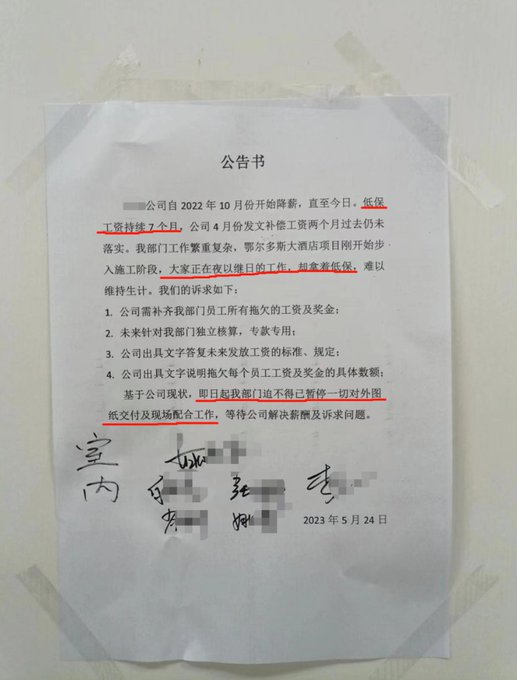 公告书
公司自 2022 年 10 月份开始降薪，直至今日。低保
工资持续 7 个月，公司 4 月份发文补偿工资两个月过去仍未
落实。我部门工作繁重复杂，鄂尔多斯大酒店项目刚开始步
入施工阶段，大家正在夜以继日的工作，却拿着低保，难以
维持生计。我们的诉求如下：
1. 公司需补齐我部门员工所有拖欠的工资及奖金；
2. 未来针对我部门独立核算，专款专用；
3. 公司出具文字答复未来发放工资的标准、规定；
4. 公司出具文字说明拖欠每个员工工资及奖金的具体数额；
基于公司现状，即日起我部门迫不得已暂停一切对外图
纸交付及现场配合工作，等待公司解决薪酬及诉求问题。
室
内
2023 年 5 月 24 日